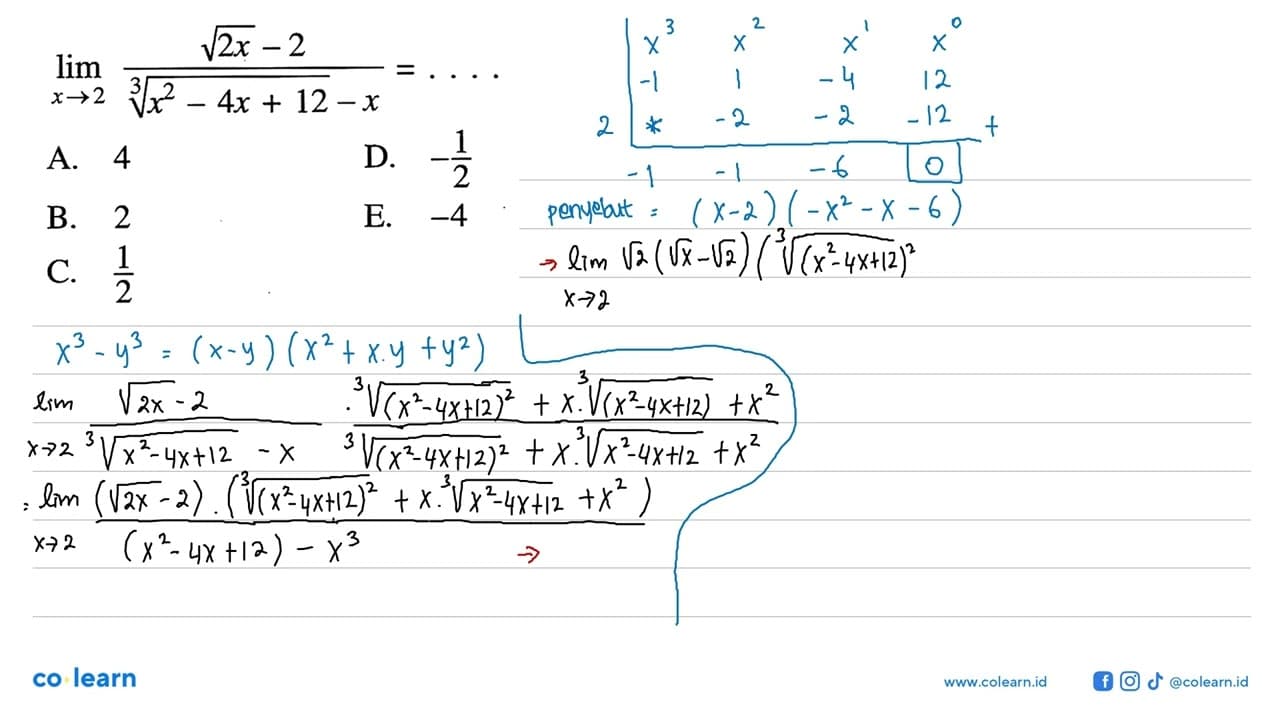 lim x→2 (√2x − 2)/(∛x² − 4x + 12 − x) = . . . .
A. 4
B. 2
C. 1/2
D. −1/2
E. −4
x³ x² x¹ x⁰
-1 1 -4 12
2 * -2 -2 -12 +
-1 -1 -6 0
penyebut = (x-2)(-x² - x - 6)
→ lim x→2 √2(√x - √2)(∛(x²-4x+12)²
x³ - y³ = (x-y)(x² + x.y + y²)
lim x→2 (√2x - 2)/(∛x²-4x+12 - x) . (∛(x²-4x+12)² + x.∛(x²-4x+12) + x²)/(∛(x²-4x+12)² + x.∛x²-4x+12 + x²)
= lim x→2 (√2x - 2).(∛(x²-4x+12)² + x.∛x²-4x+12 + x²)/((x²-4x+12) - x³) →
co learn
www.colearn.id
@colearn.id